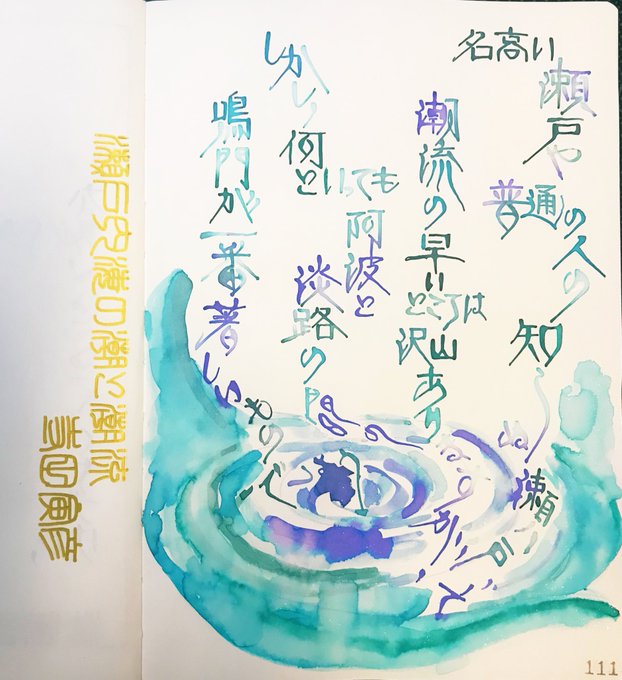 名高い
瀬戸や
普通の人の
知らぬ瀬戸
潮流の早いところは
沢山あり
しかし何といっても
阿波と
淡路の間の
鳴門が一番著しい
もの
瀬戸内海の潮と潮流
寺田寅彦
111